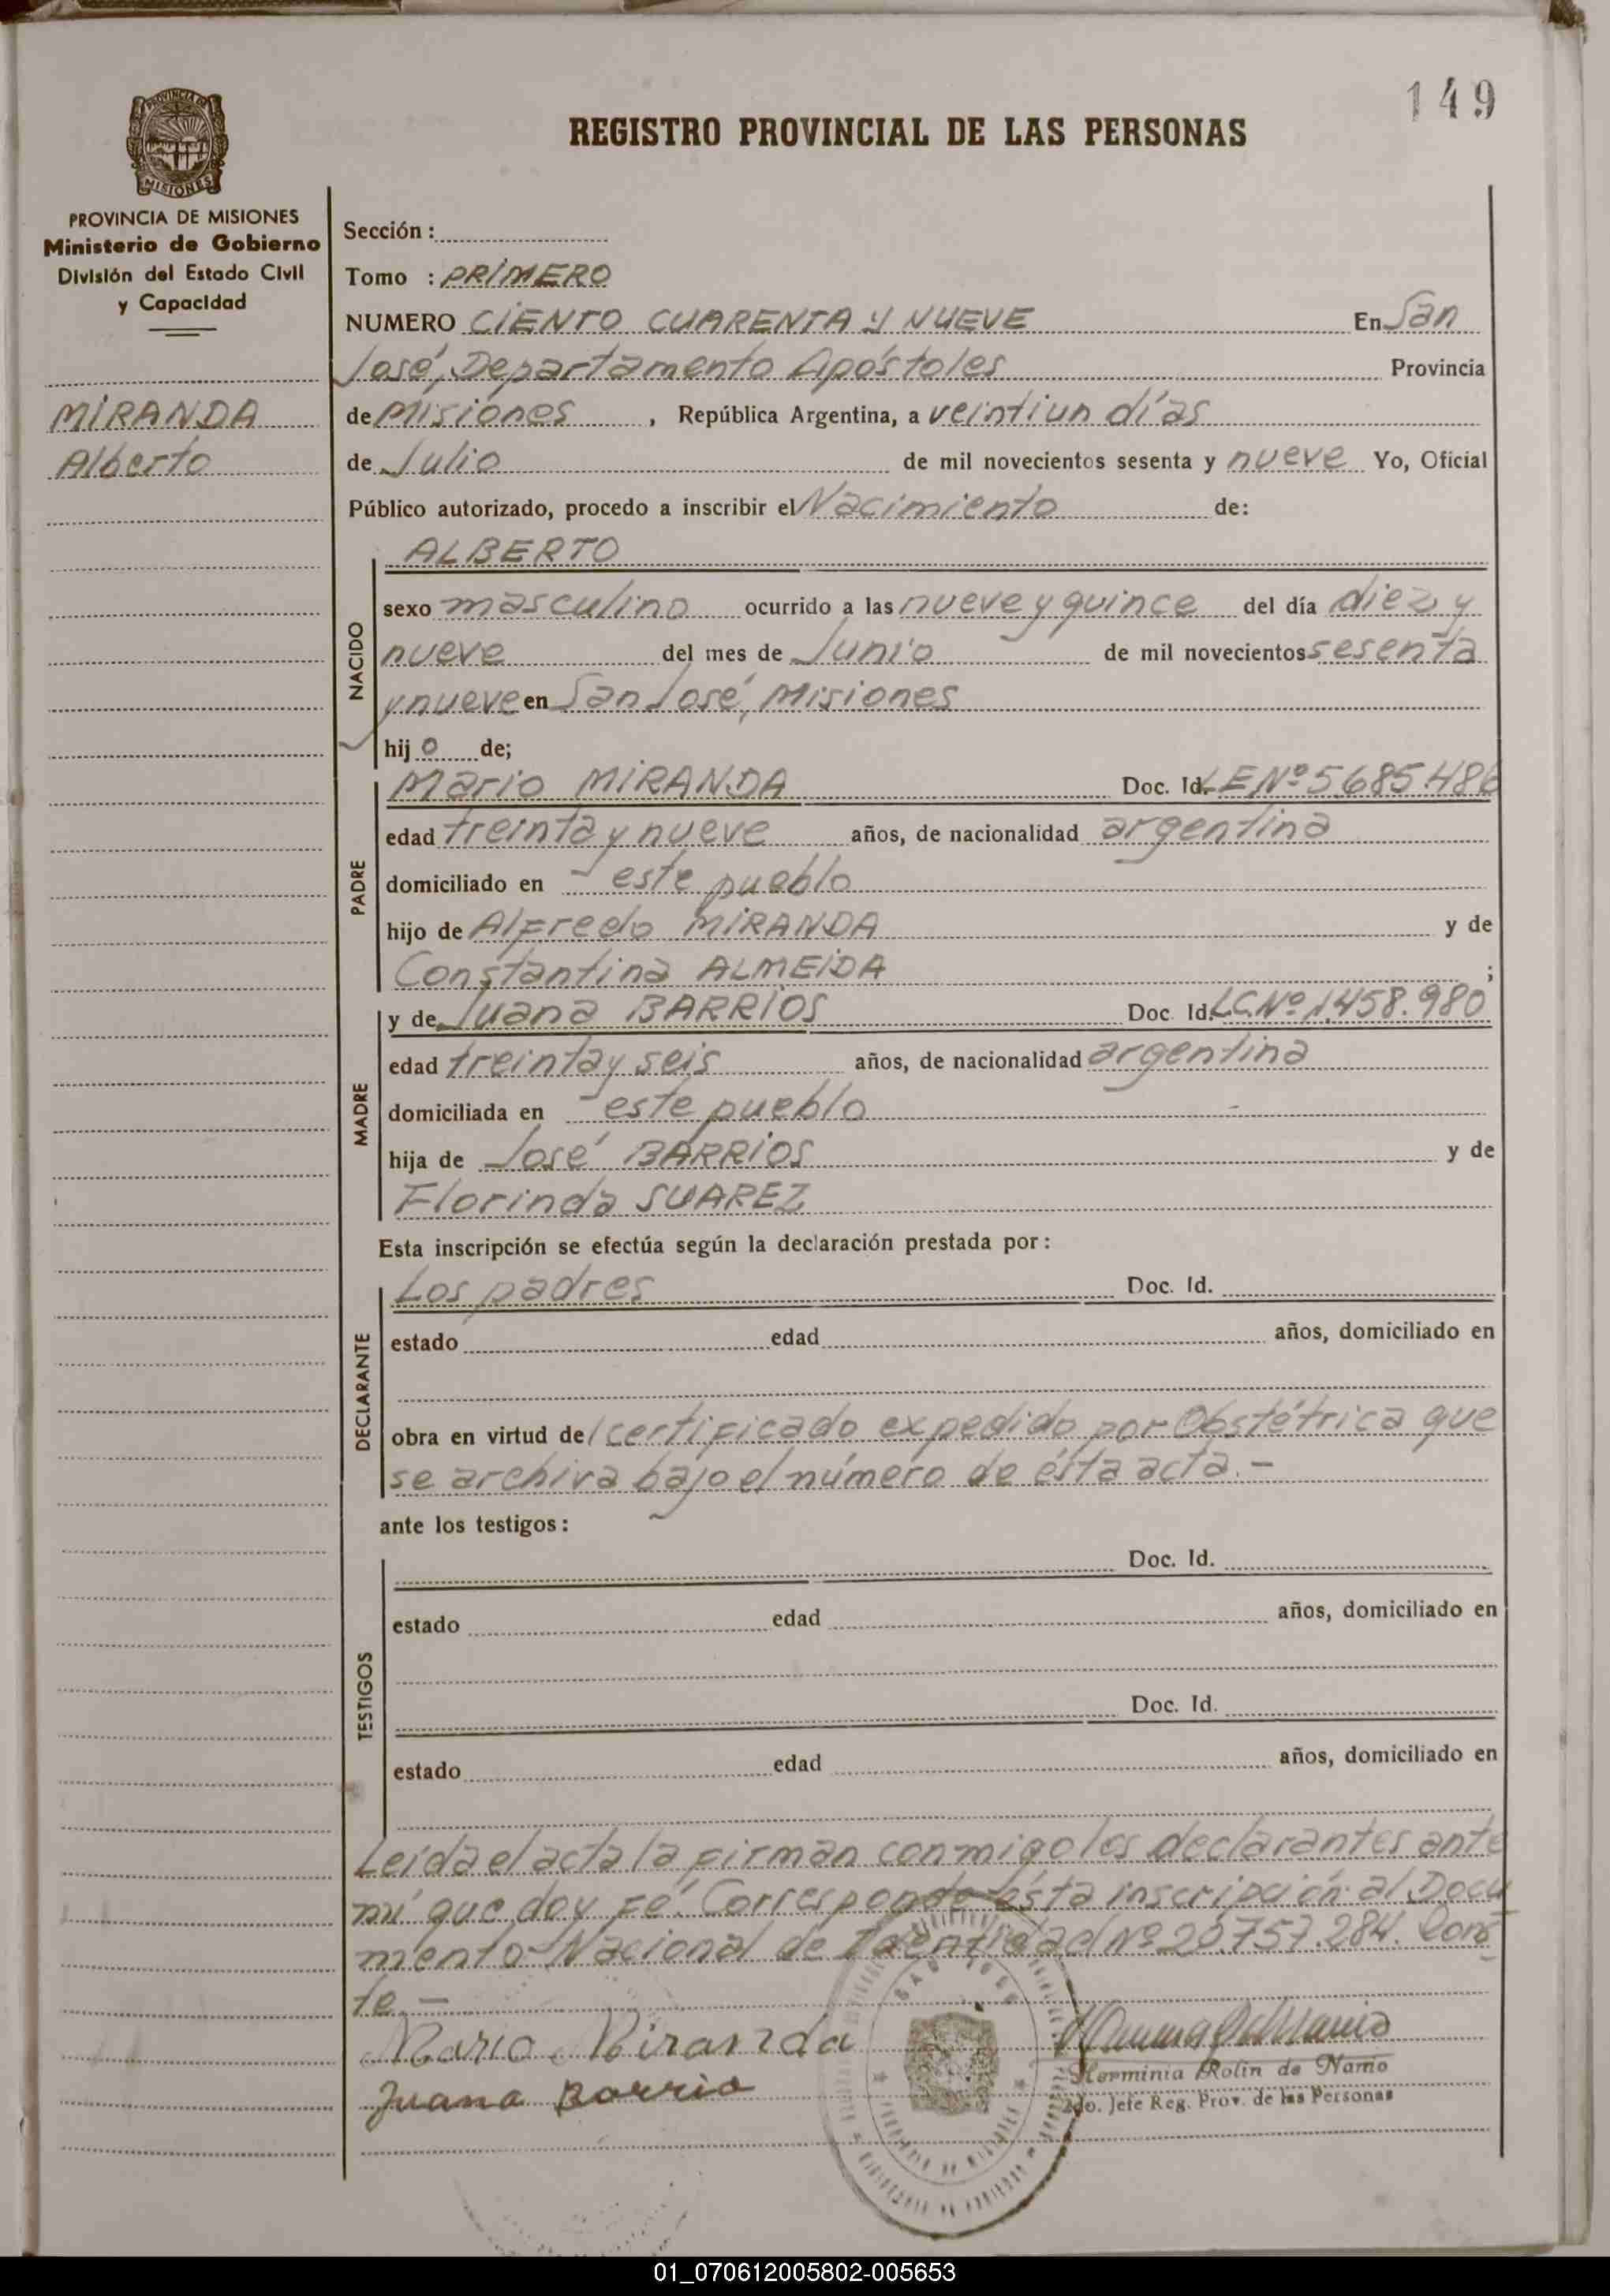 149
REGISTRO PROVINCIAL DE LAS PERSONAS
PROVINCIA DE
MISIONES
PROVINCIA DE MISIONES
Ministerio de Gobierno
División del Estado Civil
y Capacidad
MIRANDA
Alberto
Sección :
Tomo : PRIMERO
NUMERO CIENTO CUARENTA Y NUEVE En San
José, Departamento Apóstoles Provincia
de Misiones , República Argentina, a veintiun días
de Julio de mil novecientos sesenta y nueve Yo, Oficial
Público autorizado, procedo a inscribir el Nacimiento de:
NACIDO
ALBERTO
sexo masculino ocurrido a las nueve y quince del día diez y
nueve del mes de Junio de mil novecientos sesenta
y nueve en San José, Misiones
hij o de;
PADRE
Mario MIRANDA Doc. Id. LE Nº 5685486
edad treinta y nueve años, de nacionalidad argentina
domiciliado en este pueblo
hijo de Alfredo MIRANDA y de
Constantina ALMEIDA ;
MADRE
y de Juana BARRIOS Doc. Id. LC. Nº 1.458.980
edad treinta y seis años, de nacionalidad argentina
domiciliada en este pueblo
hija de José BARRIOS y de
Florinda SUAREZ
Esta inscripción se efectúa según la declaración prestada por :
DECLARANTE
Los padres Doc. Id.
estado edad años, domiciliado en
obra en virtud del certificado expedido por Obstétrica que
se archiva bajo el número de ésta acta.-
ante los testigos :
TESTIGOS
Doc. Id.
estado edad años, domiciliado en
Doc. Id.
estado edad años, domiciliado en
Leída el acta la firman conmigo los declarantes ante
mí que doy fé. Corresponde ésta inscripción al Docu
mento Nacional de Identidad Nº 20.757.284. Cons
te.-
Mario Miranda
Juana Barrio
Herminia Rolin de Namio
2do. Jefe Reg. Prov. de las Personas
SAN JOSE
PROVINCIA DE MISIONES
MINISTERIO DE GOBIERNO
01_070612005802-005653